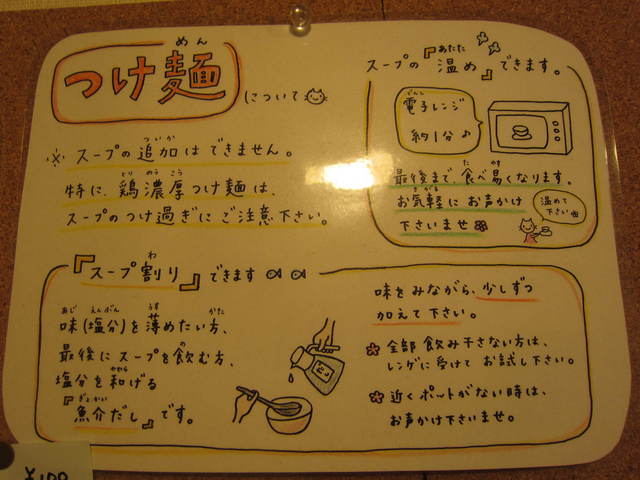 つけ麺について
※スープの追加はできません。
特に、鶏濃厚つけ麺は、
スープのつけ過ぎにご注意下さい。
スープの『温め』できます。
電子レンジ
約1分♪
最後まで、食べ易くなります。
お気軽にお声かけ
下さいませ
温めて
下さい
『スープ割り』できます
味(塩分)を薄めたい方、
最後にスープを飲む方、
塩分を和げる
『魚介だし』です。
味をみながら、少しずつ
加えて下さい。
全部飲み干さない方は、
レンゲに受けてお試し下さい。
近くポットがない時は、
お声かけ下さいませ。
¥100